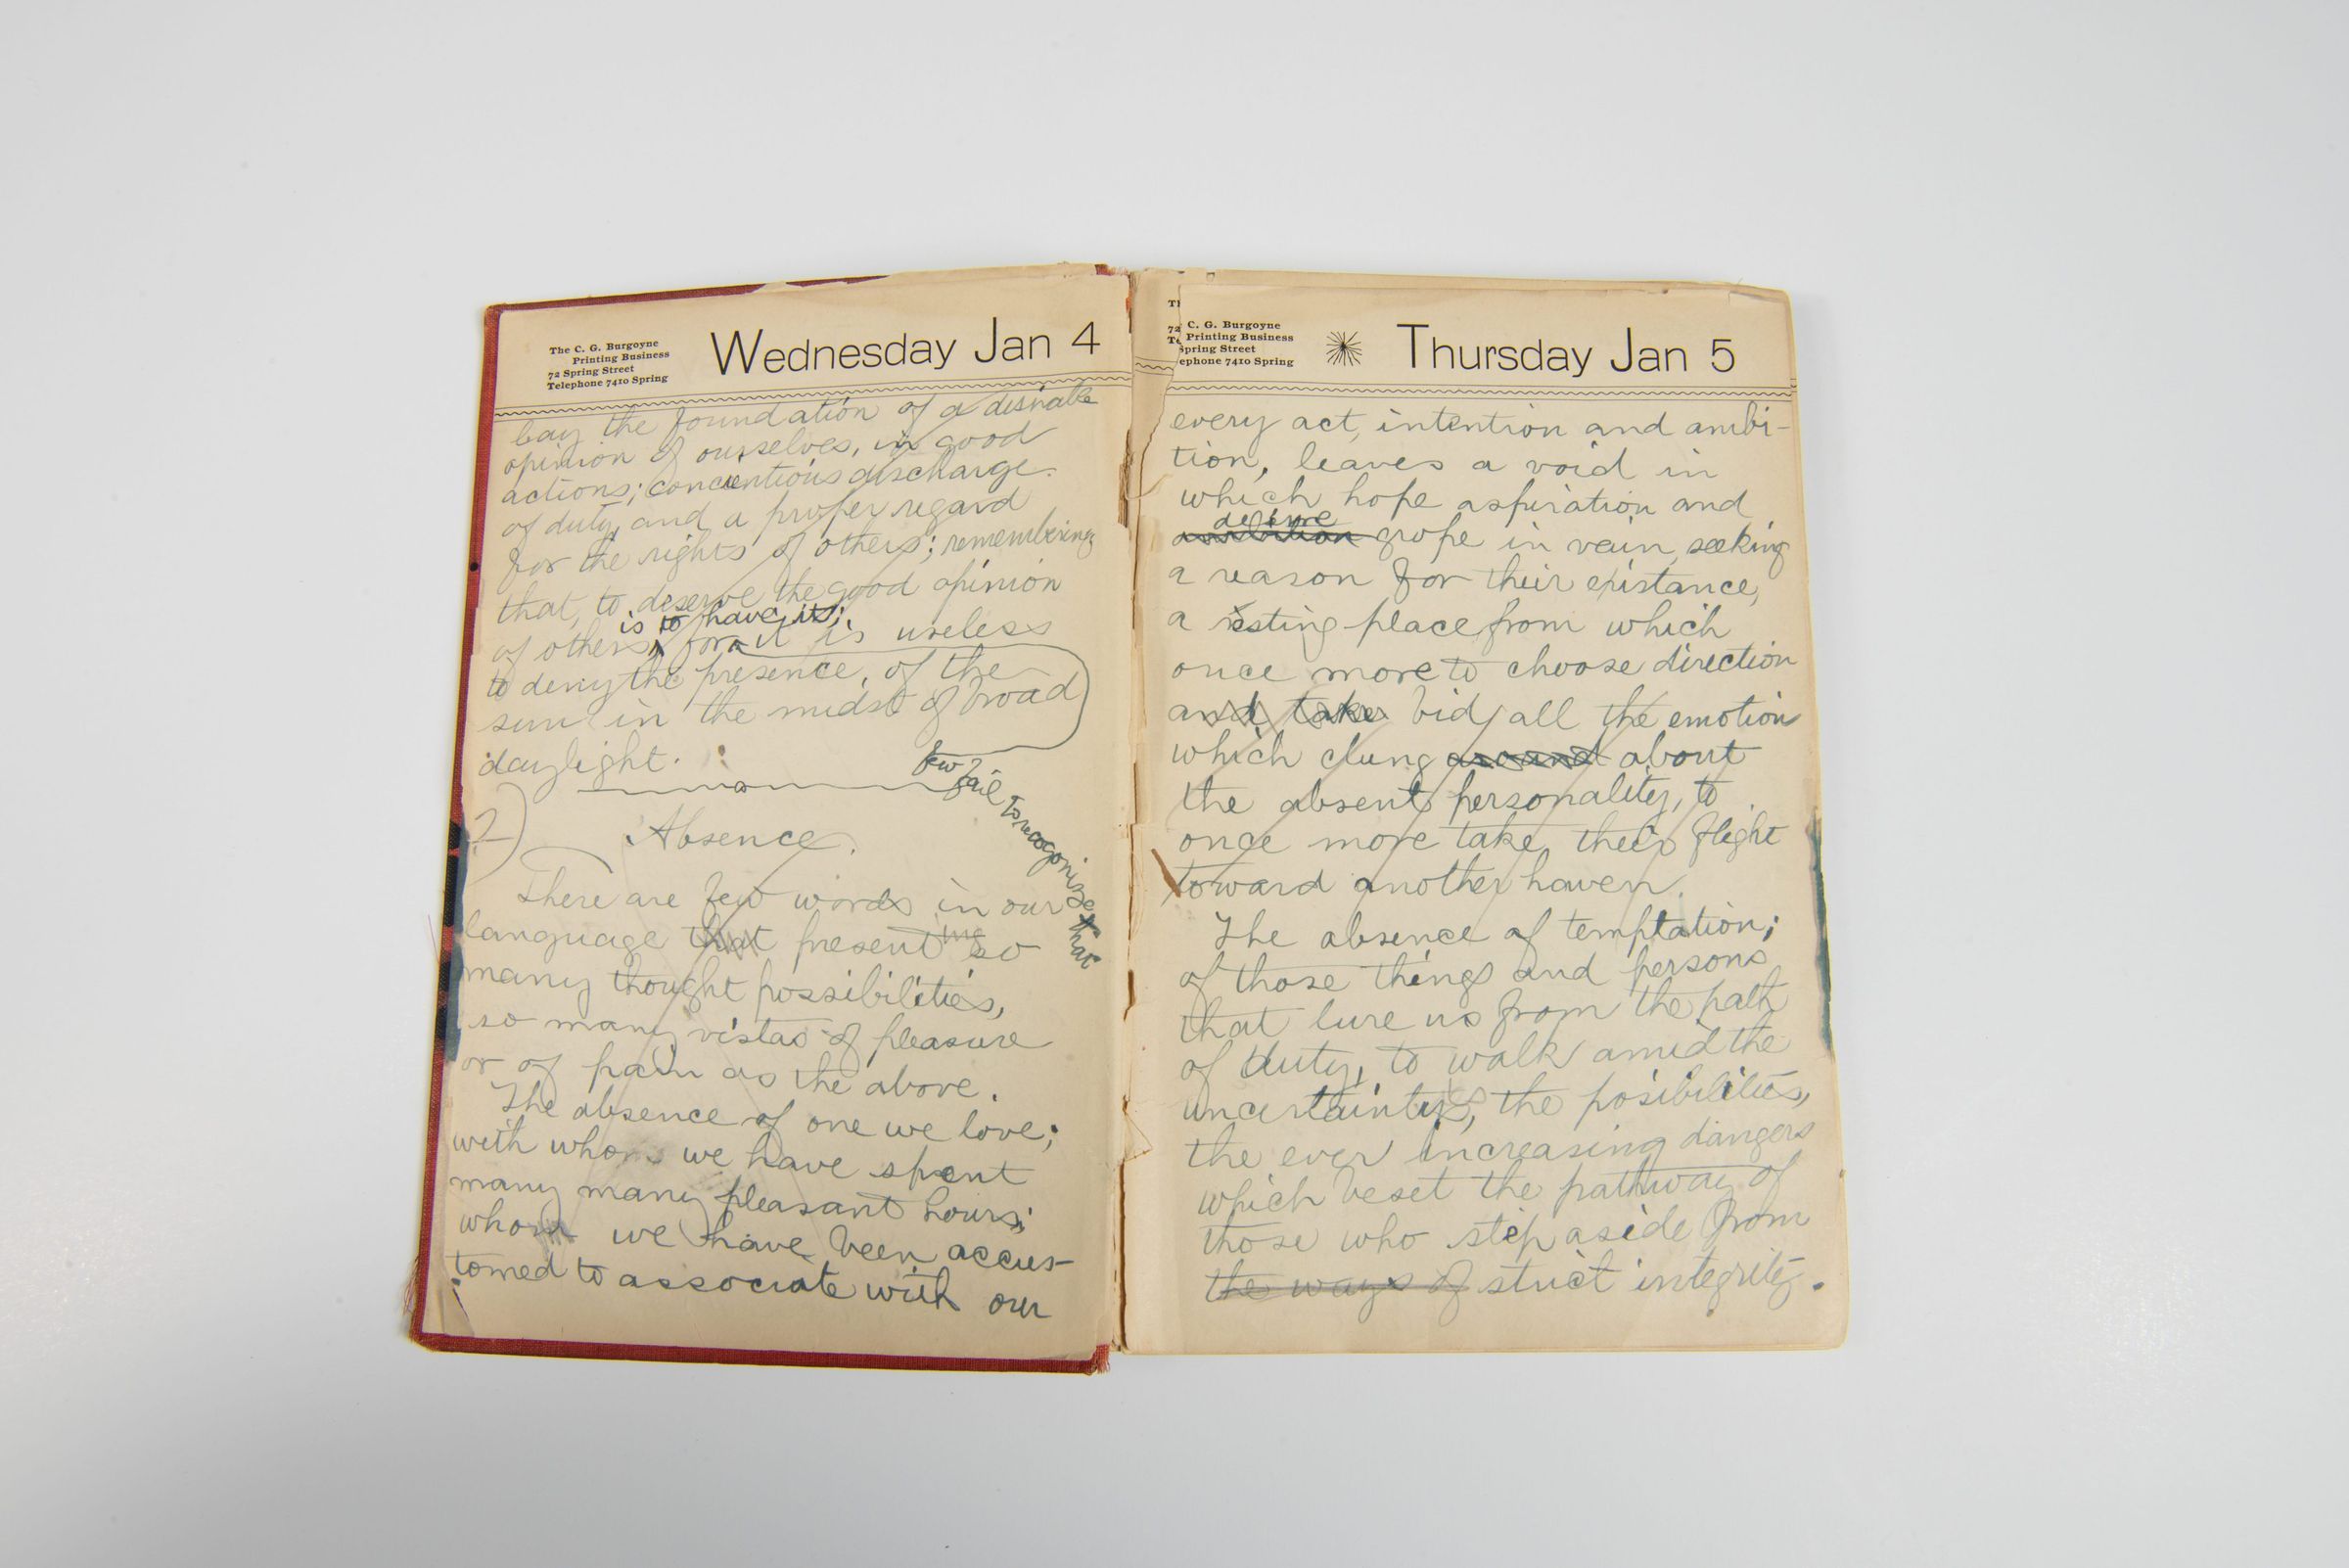 The C. G. Burgoyne
Printing Business
72 Spring Street
Telephone 7410 Spring
Wednesday Jan 4
lay the foundation of a desirable
opinion of ourselves, in good
actions; concientious discharge
of duty, and a proper regard
for the rights of others; remembering
that, to deserve the good opinion
is to have it;
of others, for it is useless
to deny the presence, of the
sun in the midst of broad
daylight.
few fail to recognize that
2)
Absence.
There are few words in our
language that presenting so
many thought possibilities,
so many vistas of pleasure
or of pain as the above.
The absence of one we love;
with whom we have spent
many many pleasant hours;
whom we have been accus-
tomed to associate with our
Th
72
Te
C. G. Burgoyne
Printing Business
Spring Street
ephone 7410 Spring
Thursday Jan 5
every act, intention and ambi-
tion, leaves a void in
which hope aspiration and
desire
ambition grope in vain, seeking
a reason for their existance,
a resting place from which
once more to choose direction
and take bid all the emotion
which clung around about
the absent personality, to
once more take their flight
toward another haven.
The absence of temptation;
of those things and persons
that lure us from the path
of duty, to walk amid the
uncertainties, the posibilities,
the ever increasing dangers
which beset the pathway of
those who step aside from
the ways of strict integrity.